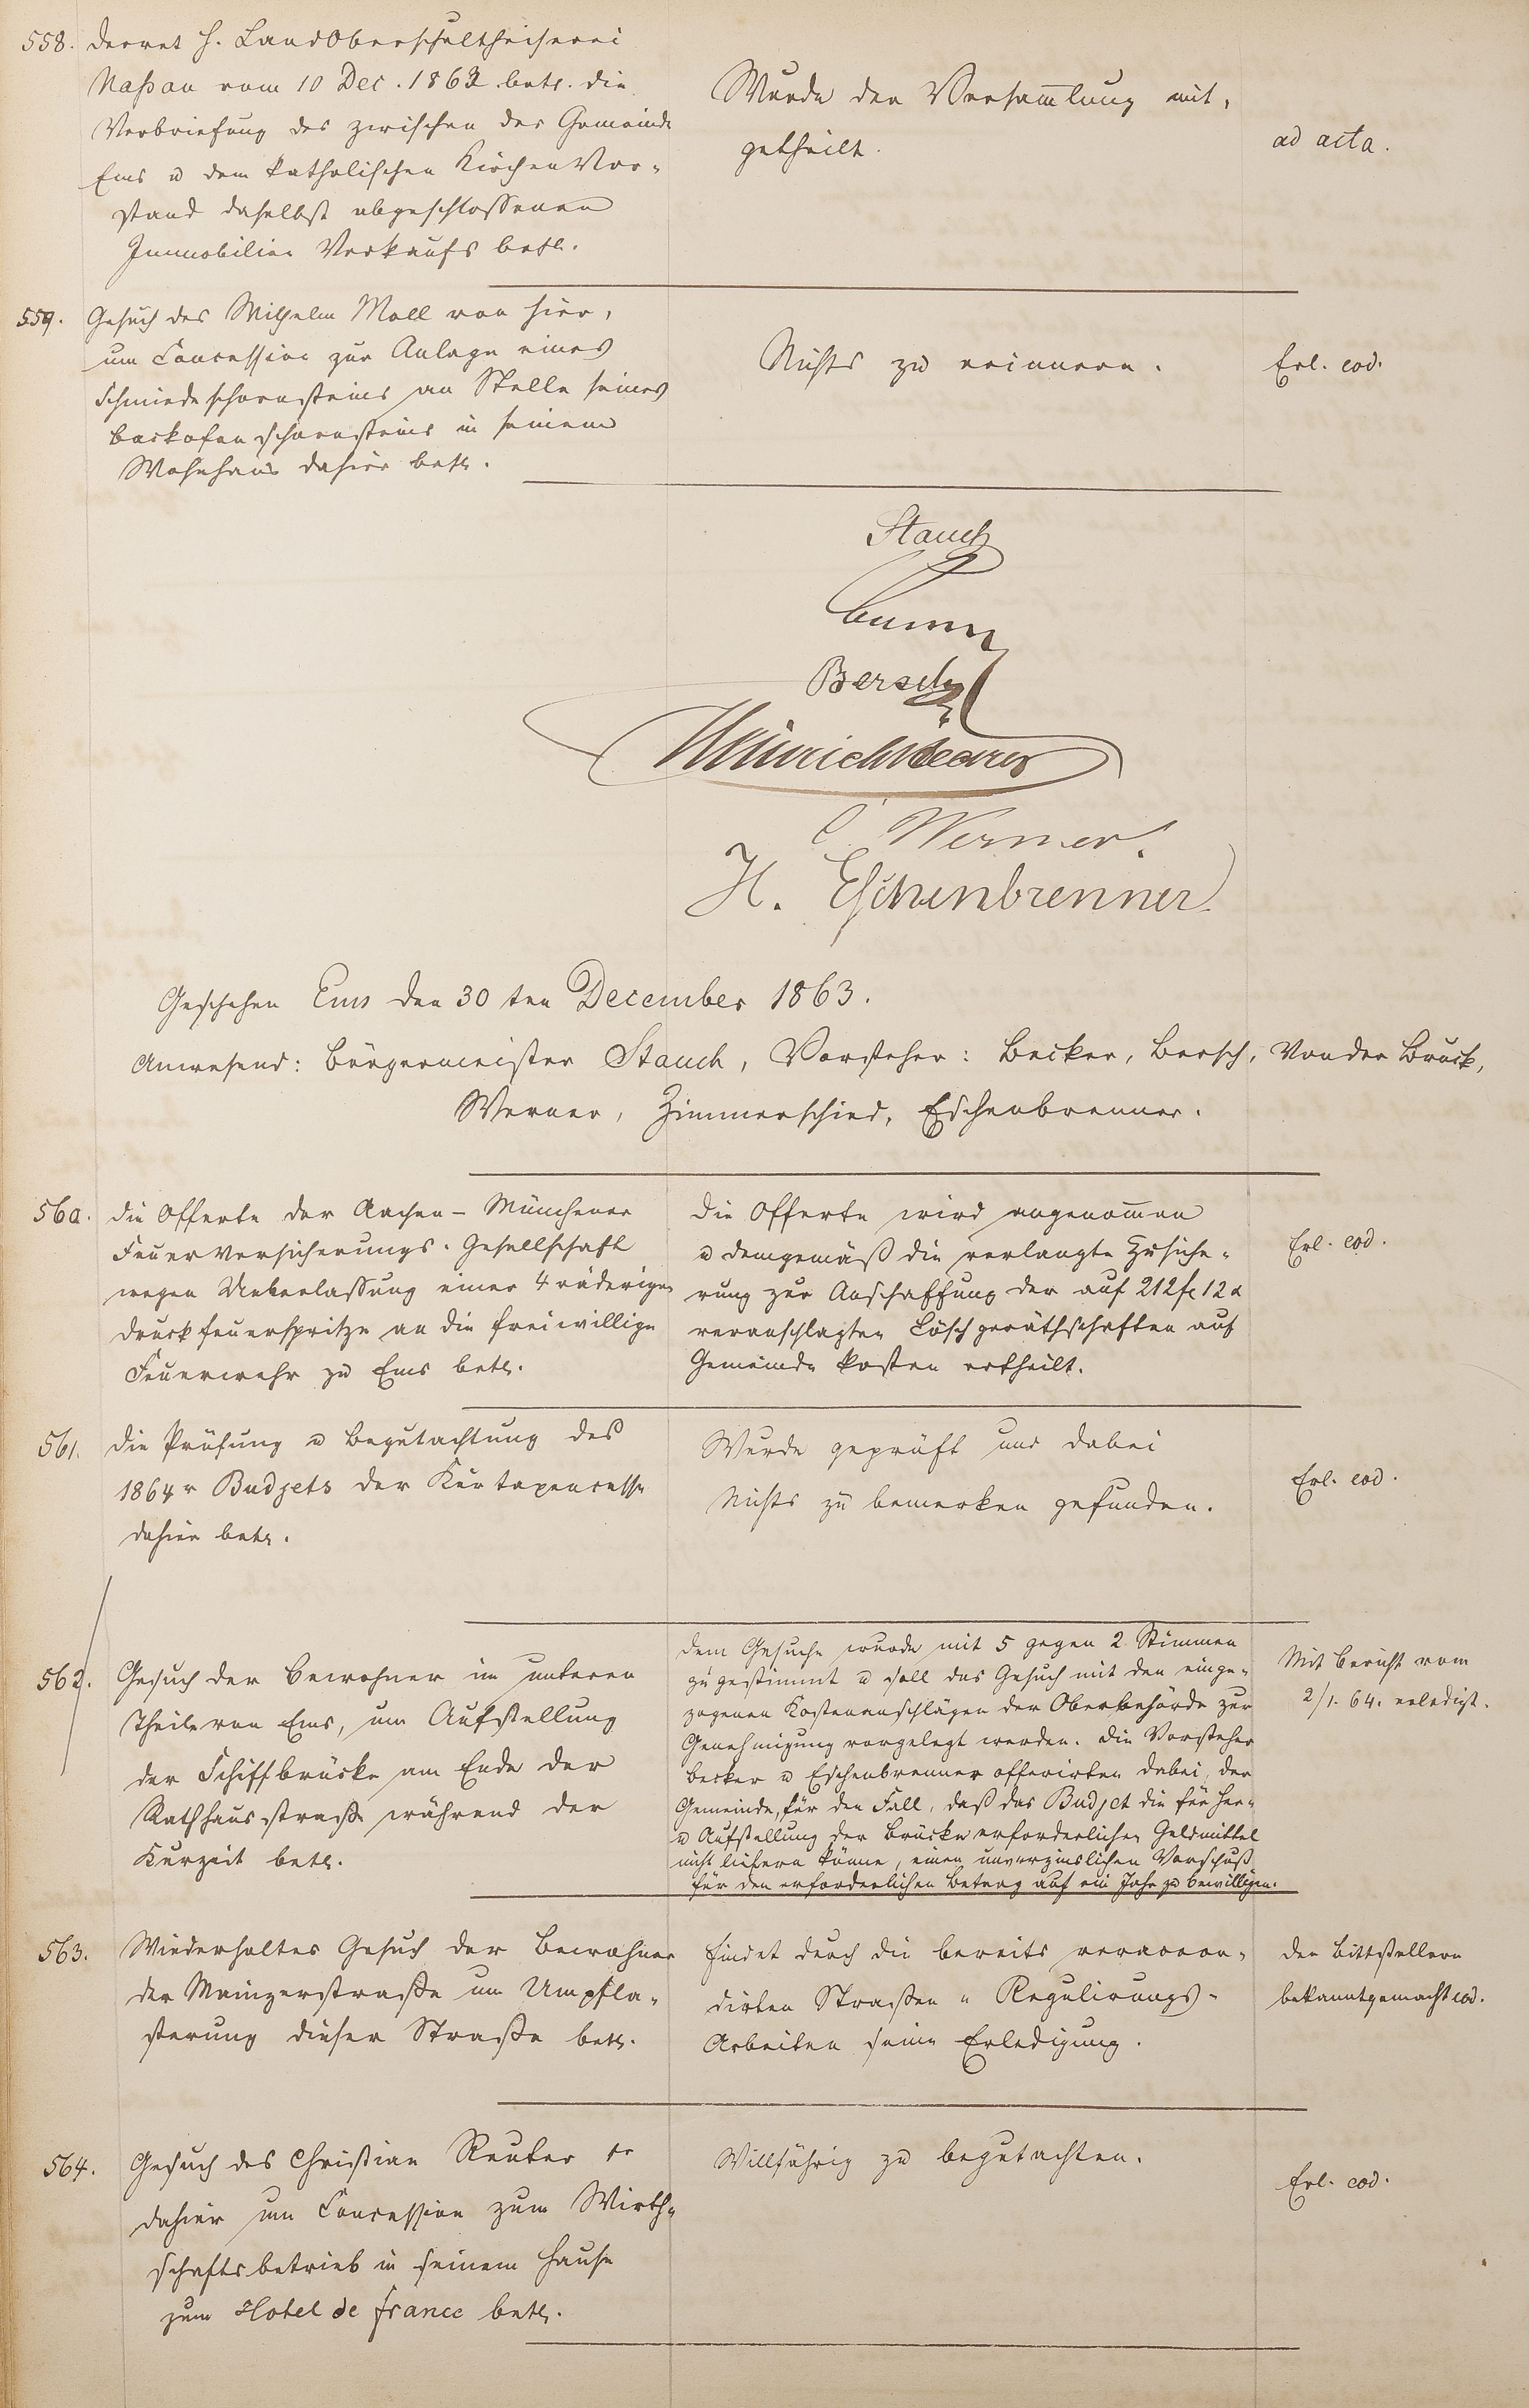 558. Decret H. LandOberschultheiserei
Naßau vom 10 Dec. 1863. betr. die
Verbriefung des zwischen der Gemeinde
Ems u dem katholischen KirchenVor-
stand daselbst abgeschlossenen
Immobilien Verkaufs betr.
Wurde der Versam̅lung mit-
getheilt.
ad acta.
559. Gesuch des Wilhelm Moll von hier,
um Concession zur Anlage eines
Schmiedeschornsteins an Stelle seines
Backofenschornsteins in seinem
Wohnhaus dahier betr.
Nichts zu erinnern.
Erl. eod.
Stauch
Bersch
C. Werner.
H. Eschenbrenner
Geschehen Ems den 30 ten December 1863.
Anwesend: Bürgermeister Stauch, Vorsteher: Becker, Bersch, Von der Bruck,
Werner, Zimmerschied, Eschenbrenner.
560. Die Offerte der Aachen-Münchener
Feuerversicherungs-Gesellschaft
wegen Ueberlassung einer 4 räderigen
Druckfeuerspritze an die freiwillige
Feuerwehr zu Ems betr.
Die Offerte wird angenom̅en
u demgemäß die verlangte Zusiche-
rung zur Anschaffung der auf 212 f 12 x
veranschlagten Löschgeräthschaften auf
Gemeinde kosten ertheilt.
Erl. eod.
561. Die Prüfung u Begutachtung des
1864r Budjets der Kurtaxencasse
dahier betr.
Wurde geprüft und dabei
Nichts zu bemerken gefunden.
Erl. eod.
562. Gesuch der Bewohner im unteren
Theile von Ems, um Aufstellung
der Schiffbrücke am Ende der
Rathhausstraße während der
Kurzeit betr.
Dem Gesuche wurde mit 5 gegen 2 Stimmen
zugestimmt u soll das Gesuch mit den einge-
zogenen Kostenanschlägen der Oberbehörde zur
Genehmigung vorgelegt werden. Die Vorsteher
Becker u Eschenbrenner offerirten dabei, der
Gemeinde, für den Fall, daß das Budjet die für Her-
u Aufstellung der Brücke erforderlichen Geldmittel
nicht liefern könne, einen unverzinslichen Vorschuß
für den erforderlichen Betrag auf ein Jahr zu bewilligen.
Mit Bericht vom
2/1. 64. erledigt.
563. Wiederholtes Gesuch der Bewohner
der Mainzerstraße um Umpfla-
sterung dieser Straße betr.
Findet durch die bereits veraccor-
dirten Straßen-Regulirungs-
Arbeiten seine Erledigung.
Den Bittstellern
bekanntgemacht eod.
564. Gesuch des Christian Reuter
dahier um Concession zum Wirth-
schaftsbetrieb in seinem Hause
zum Hotel de france betr.
Willfährig zu begutachten.
Erl. eod.